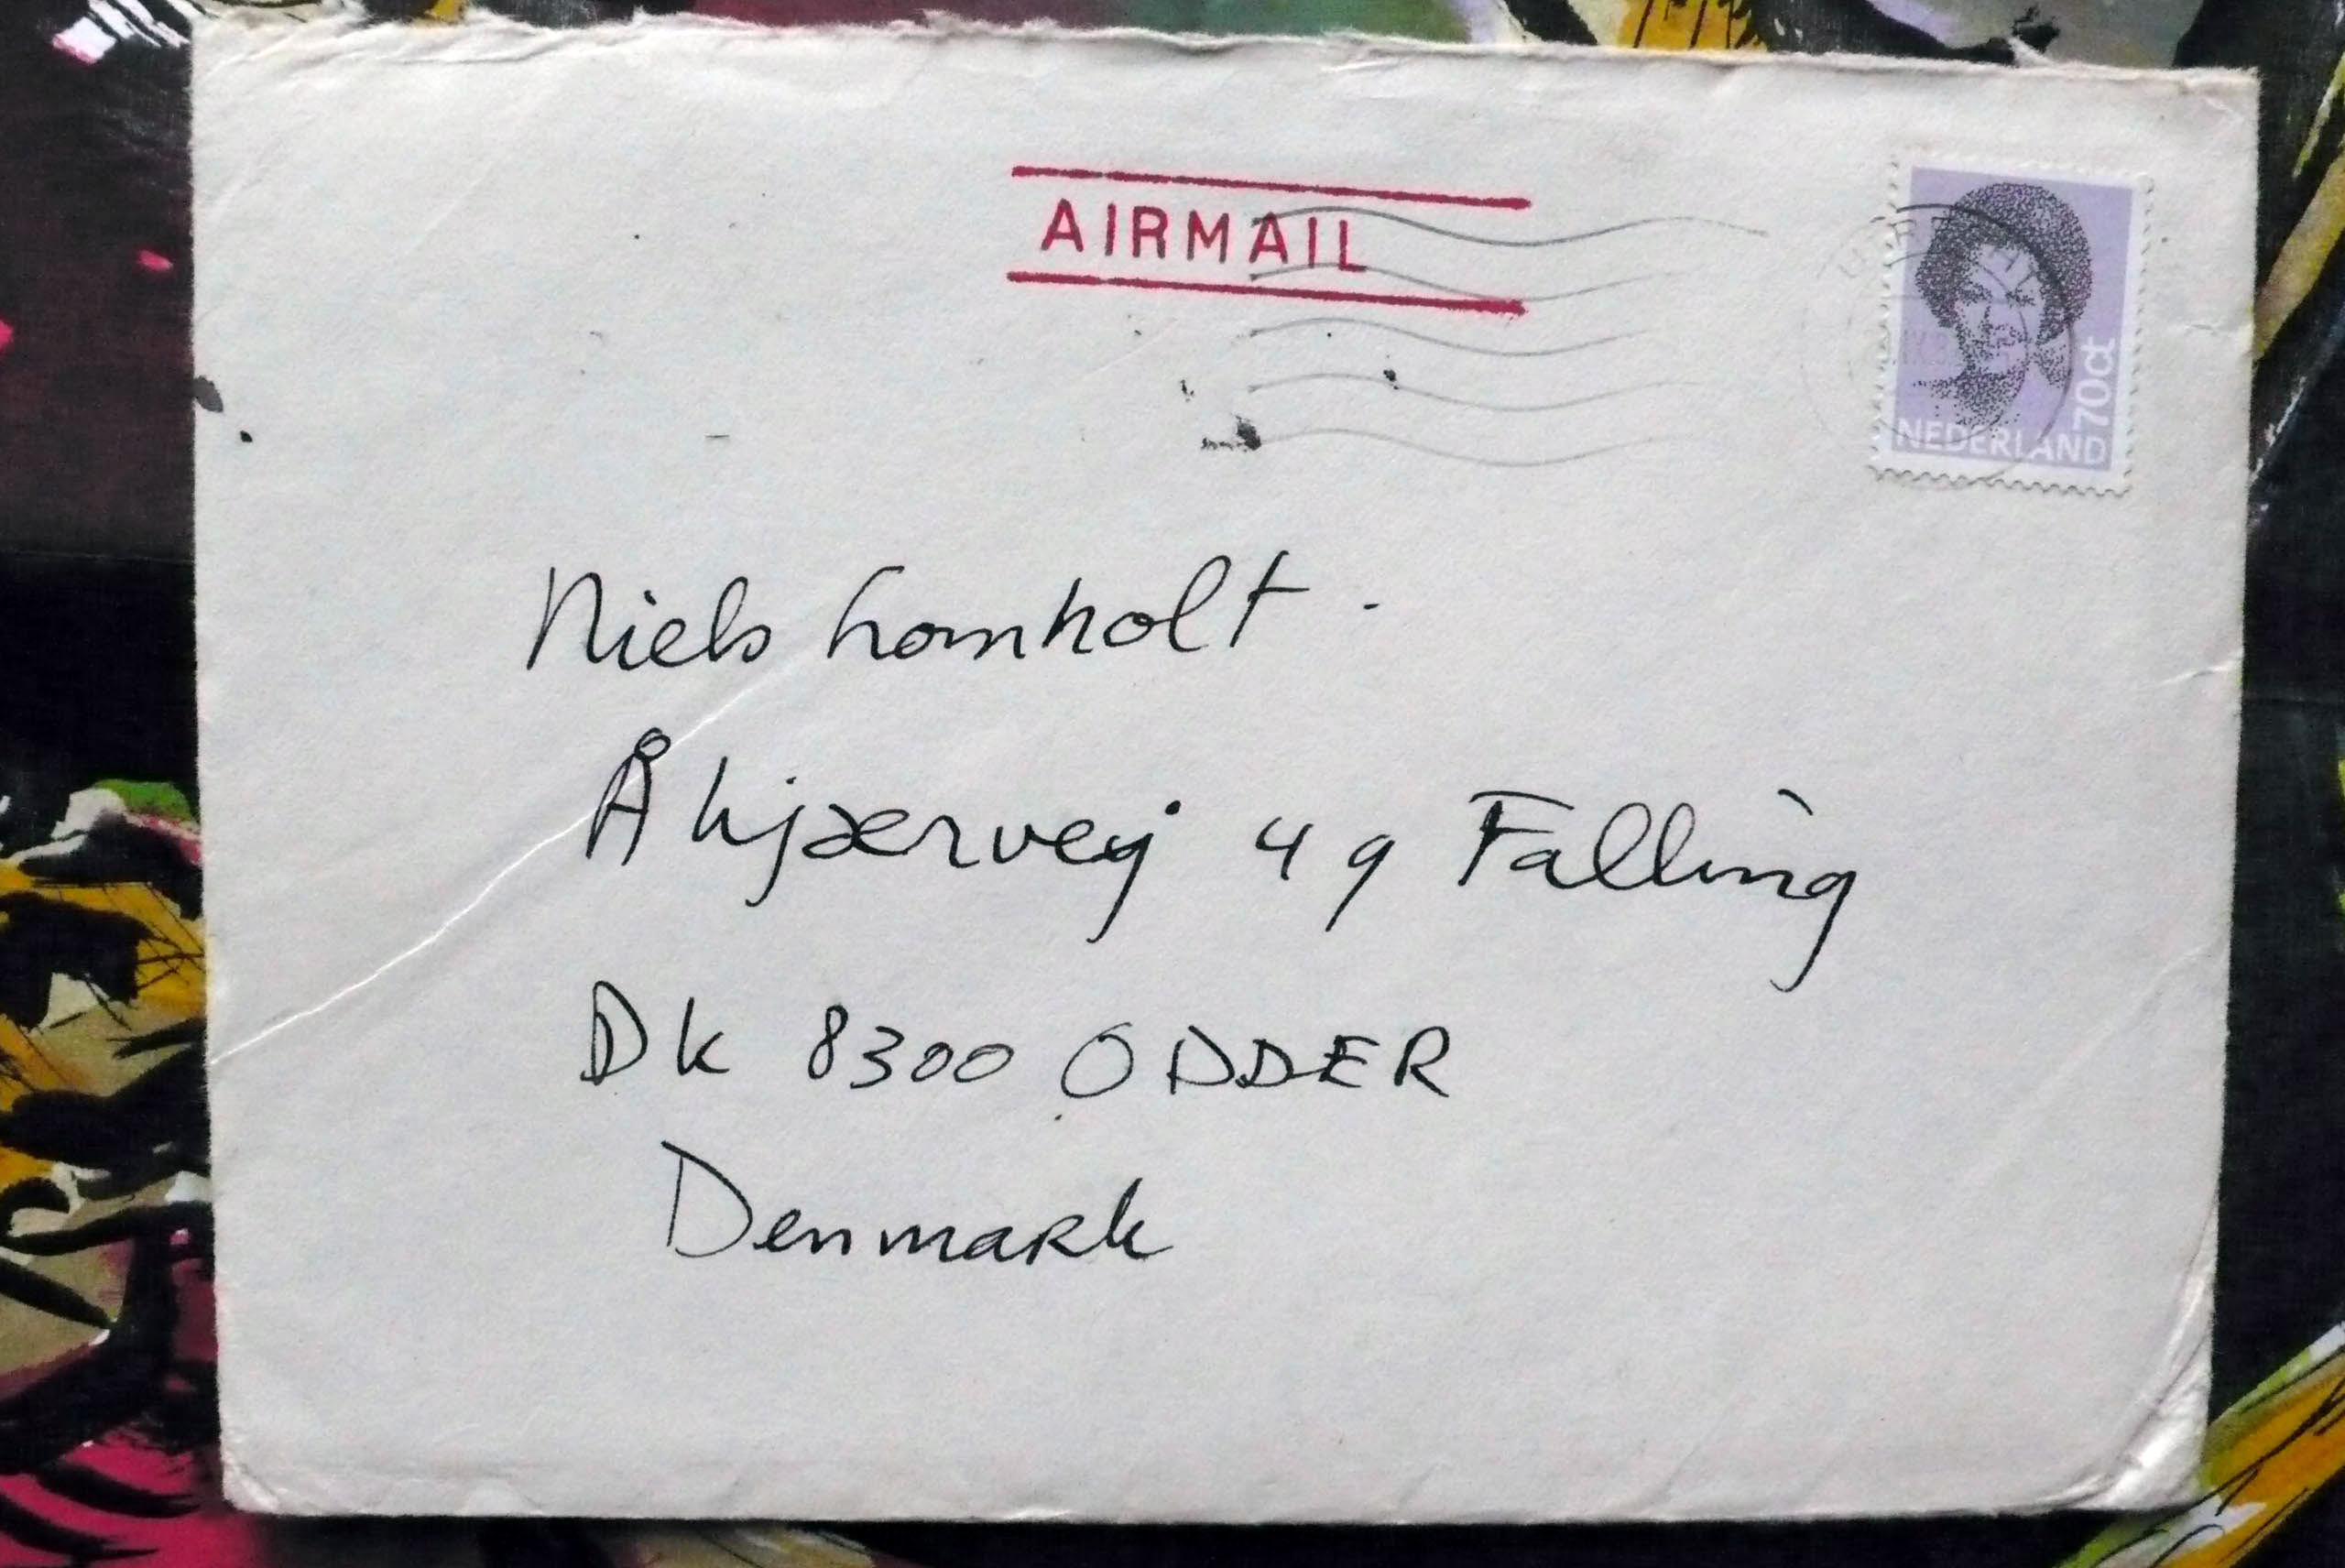 AIRMAIL
70ct
NEDERLAND
Niels Lomholt.
Åkjærvej 49 Falling
DK 8300 ODDER
Denmark